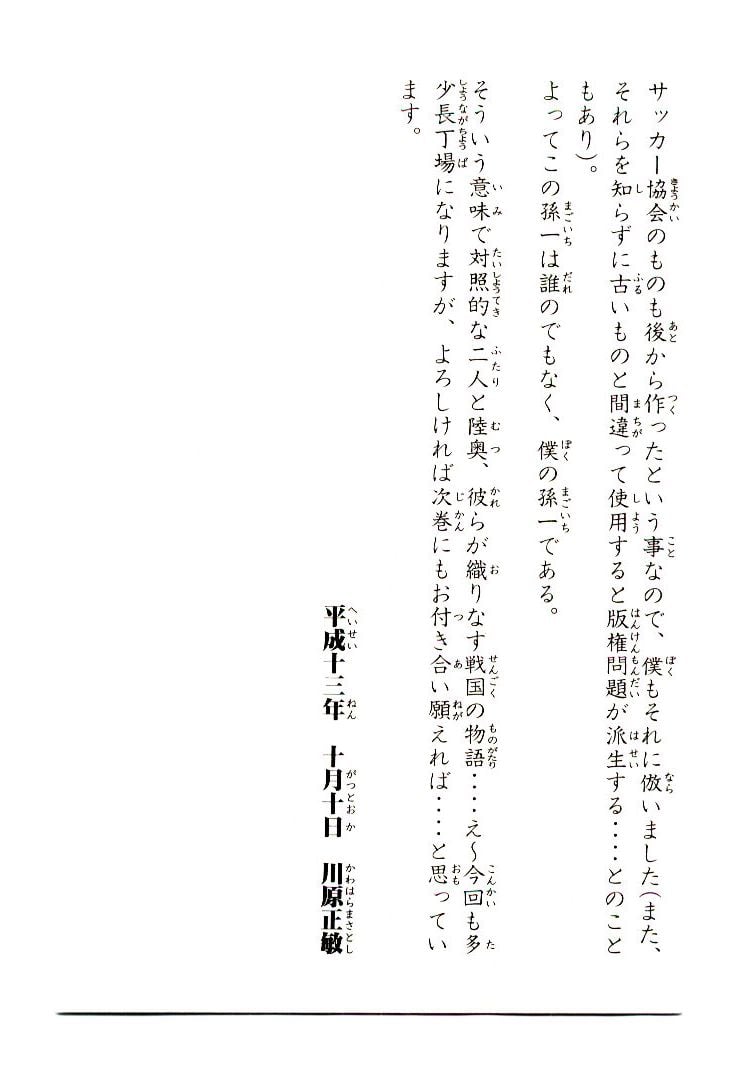 サッカー協会のものも後から作ったという事なので、僕もそれに倣いました(また、
それらを知らずに古いものと間違って使用すると版権問題が派生する‥‥とのこと
もあり)。
よってこの孫一は誰のでもなく、僕の孫一である。
そういう意味で対照的な二人と陸奥、彼らが織りなす戦国の物語‥‥え〜今回も多
少長丁場になりますが、よろしければ次巻にもお付き合い願えれば‥‥と思ってい
ます。
平成十三年 十月十日 川原正敏